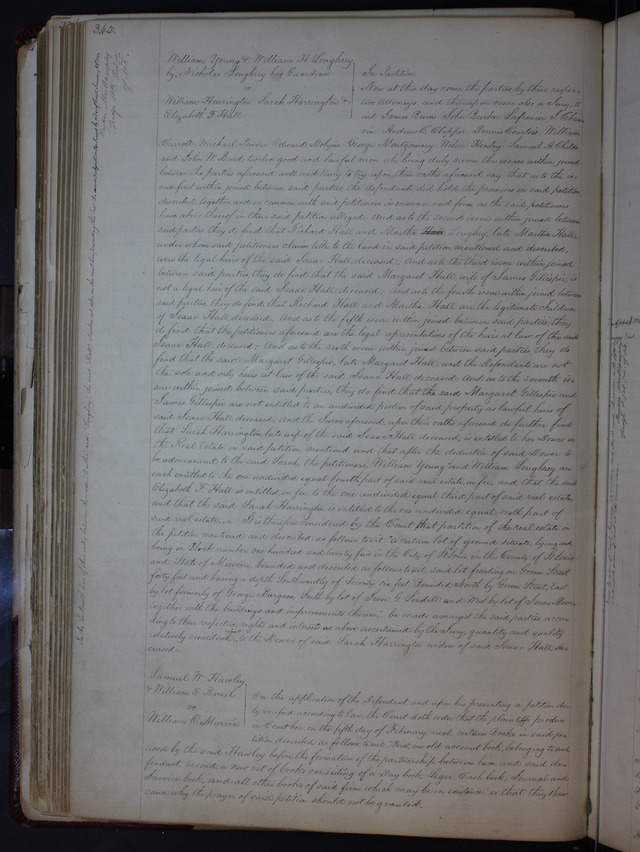 342.
William Young & William H. Loughrey
by Nicholas Loughrey his Guardian
vs
William Harrington Sarah Harrington &
Elizabeth F. Hall
In Partition
Now at this day come the parties by their respec-
tive Attorneys, and thereupon come also a Jury, to
wit, James Barr John Burke
Andrew E. Clopper Dennis William
Michael Edward George Montgomery Samuel A. Childs
and John W. twelve good and lawful men who being duly sworn the issues within joined
between the parties aforesaid well and truly to try upon their oaths aforesaid say that as to the is-
sue first within joined between said parties, the defendants did hold the premises in said petition
described together and in common with said petitioners in manner and form as the said petitioners
have above thereof in their said petition alleged. And as to the second issue within joined between
said parties they do find that Richard Hall and Martha Loughrey, late Martha Hall,
under whom said petitioners claim title to the land in said petition mentioned and described,
were the legal heirs of the said Isaac Hall deceased; And as to the third issue within joined
between said parties, they do find that the said Margaret Hall, wife of James Gillespie, is
not a legal heir of the said Isaac Hall deceased; And as to the fourth issue within joined between
said parties, they do find that Richard Hall and Martha Hall are the legitimate children
of Isaac Hall deceased, And as to the fifth issue within joined between said parties they
do find that the petitioners aforesaid are the legal representatives of the heirs at law of the said
Isaac Hall, deceased; And as to the sixth issue within joined between said parties they do
find that the said Margaret Gillespie, late Margaret Hall, and the Defendants are not
the sole and only heirs at law of the said Isaac Hall deceased. And as to the seventh is-
sue within joined between said parties, they do find that the said Margaret Gillespie and
James Gillespie are not entitled to an undivided portion of said property as lawful heirs of
said Isaac Hall deceased, and the Jurors aforesaid upon their oaths aforesaid do further find
that Sarah Harrington late wife of the said Isaac Hall deceased, is entitled to her Dower in
the Real Estate in said petition mentioned and that after the deduction of said Dower to
be admeasured to the said Sarah, the petitioners, William Young and William Loughrey are
each entitled to the one undivided equal fourth part of said real estate in fee, and that the said
Elizabeth F. Hall is entitled in fee to the one undivided equal third part of said real estate,
and that the said Sarah Harrington is entitled to the one undivided equal sixth part of
said real estate. It is therefore considered by the Court that partition of the real estate in
the petition mentioned and described as follows to wit: "a certain lot of ground situate lying and
being in Block number one hundred and twenty five in the City of St Louis, in the County of St Louis
and State of Missouri bounded and described as follows to wit: said lot fronting on Green Street
forty feet and having a depth Southwardly of Seventy six feet, Bounded North by Green Street, East
by lot formerly of George Burgess, South by lot of Jesse G. Lindell and West by lot of James Moore
together with the buildings and improvements thereon" be made amongst the said parties accor-
ding to their respective rights and interests as above ascertained by the Jury, quantity and quality
relatively considered, subject to the Dower of said Sarah Harrington widow of said Isaac Hall, de-
ceased.
Samuel W. Hawley
& William E.
vs
William W. Morris
On the application of the Defendant and upon his presenting a petition du-
ly verified according to law, the Court doth order that the plaintiffs produce
in Court here on the fifth day of February next, certain Books in said pe-
tition described as follows to wit, First an old account book, belonging to and
used by the said Hawley before the formation of the partnership between him and said de-
fendant, second, a new set of books consisting of a Day book, Leger, Cash book, Journal and
Invoice book, and all other books of said firm which may be in existence or that they show
cause why the prayer of said petition should not be granted.